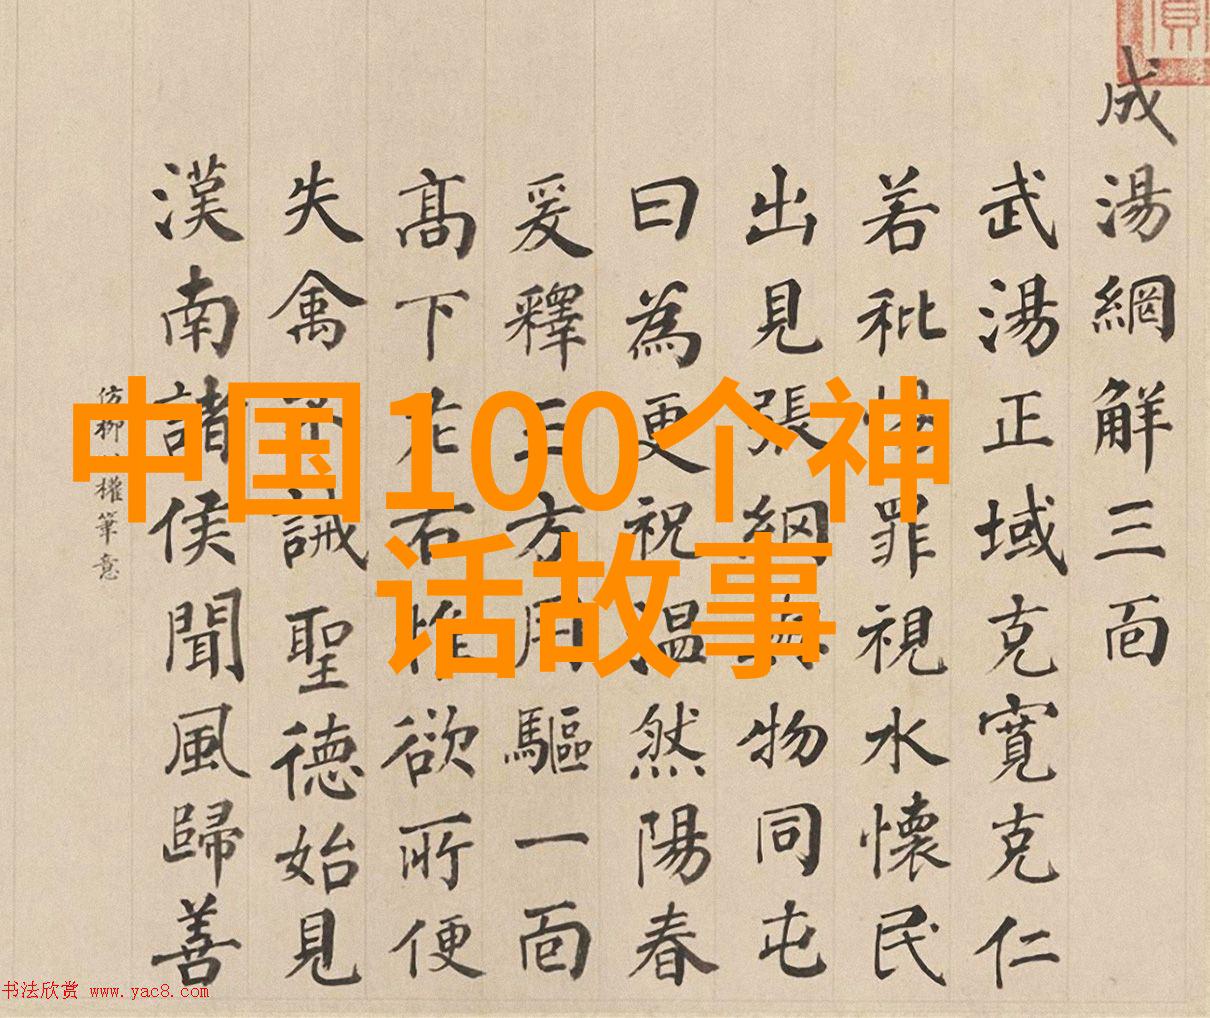 中国100个神
话故事
成湯網解三面
武湯正域克寬克仁
若秕罪視水懷民
出見張網物同屯
曰為更祝溫然陽春
爰釋三方用驅一面
髙下左右惟欲所便
失禽誡聖德始見
漢南諸侯聞風歸善
仿柳權筆意
书法欣赏 www.yac8.com